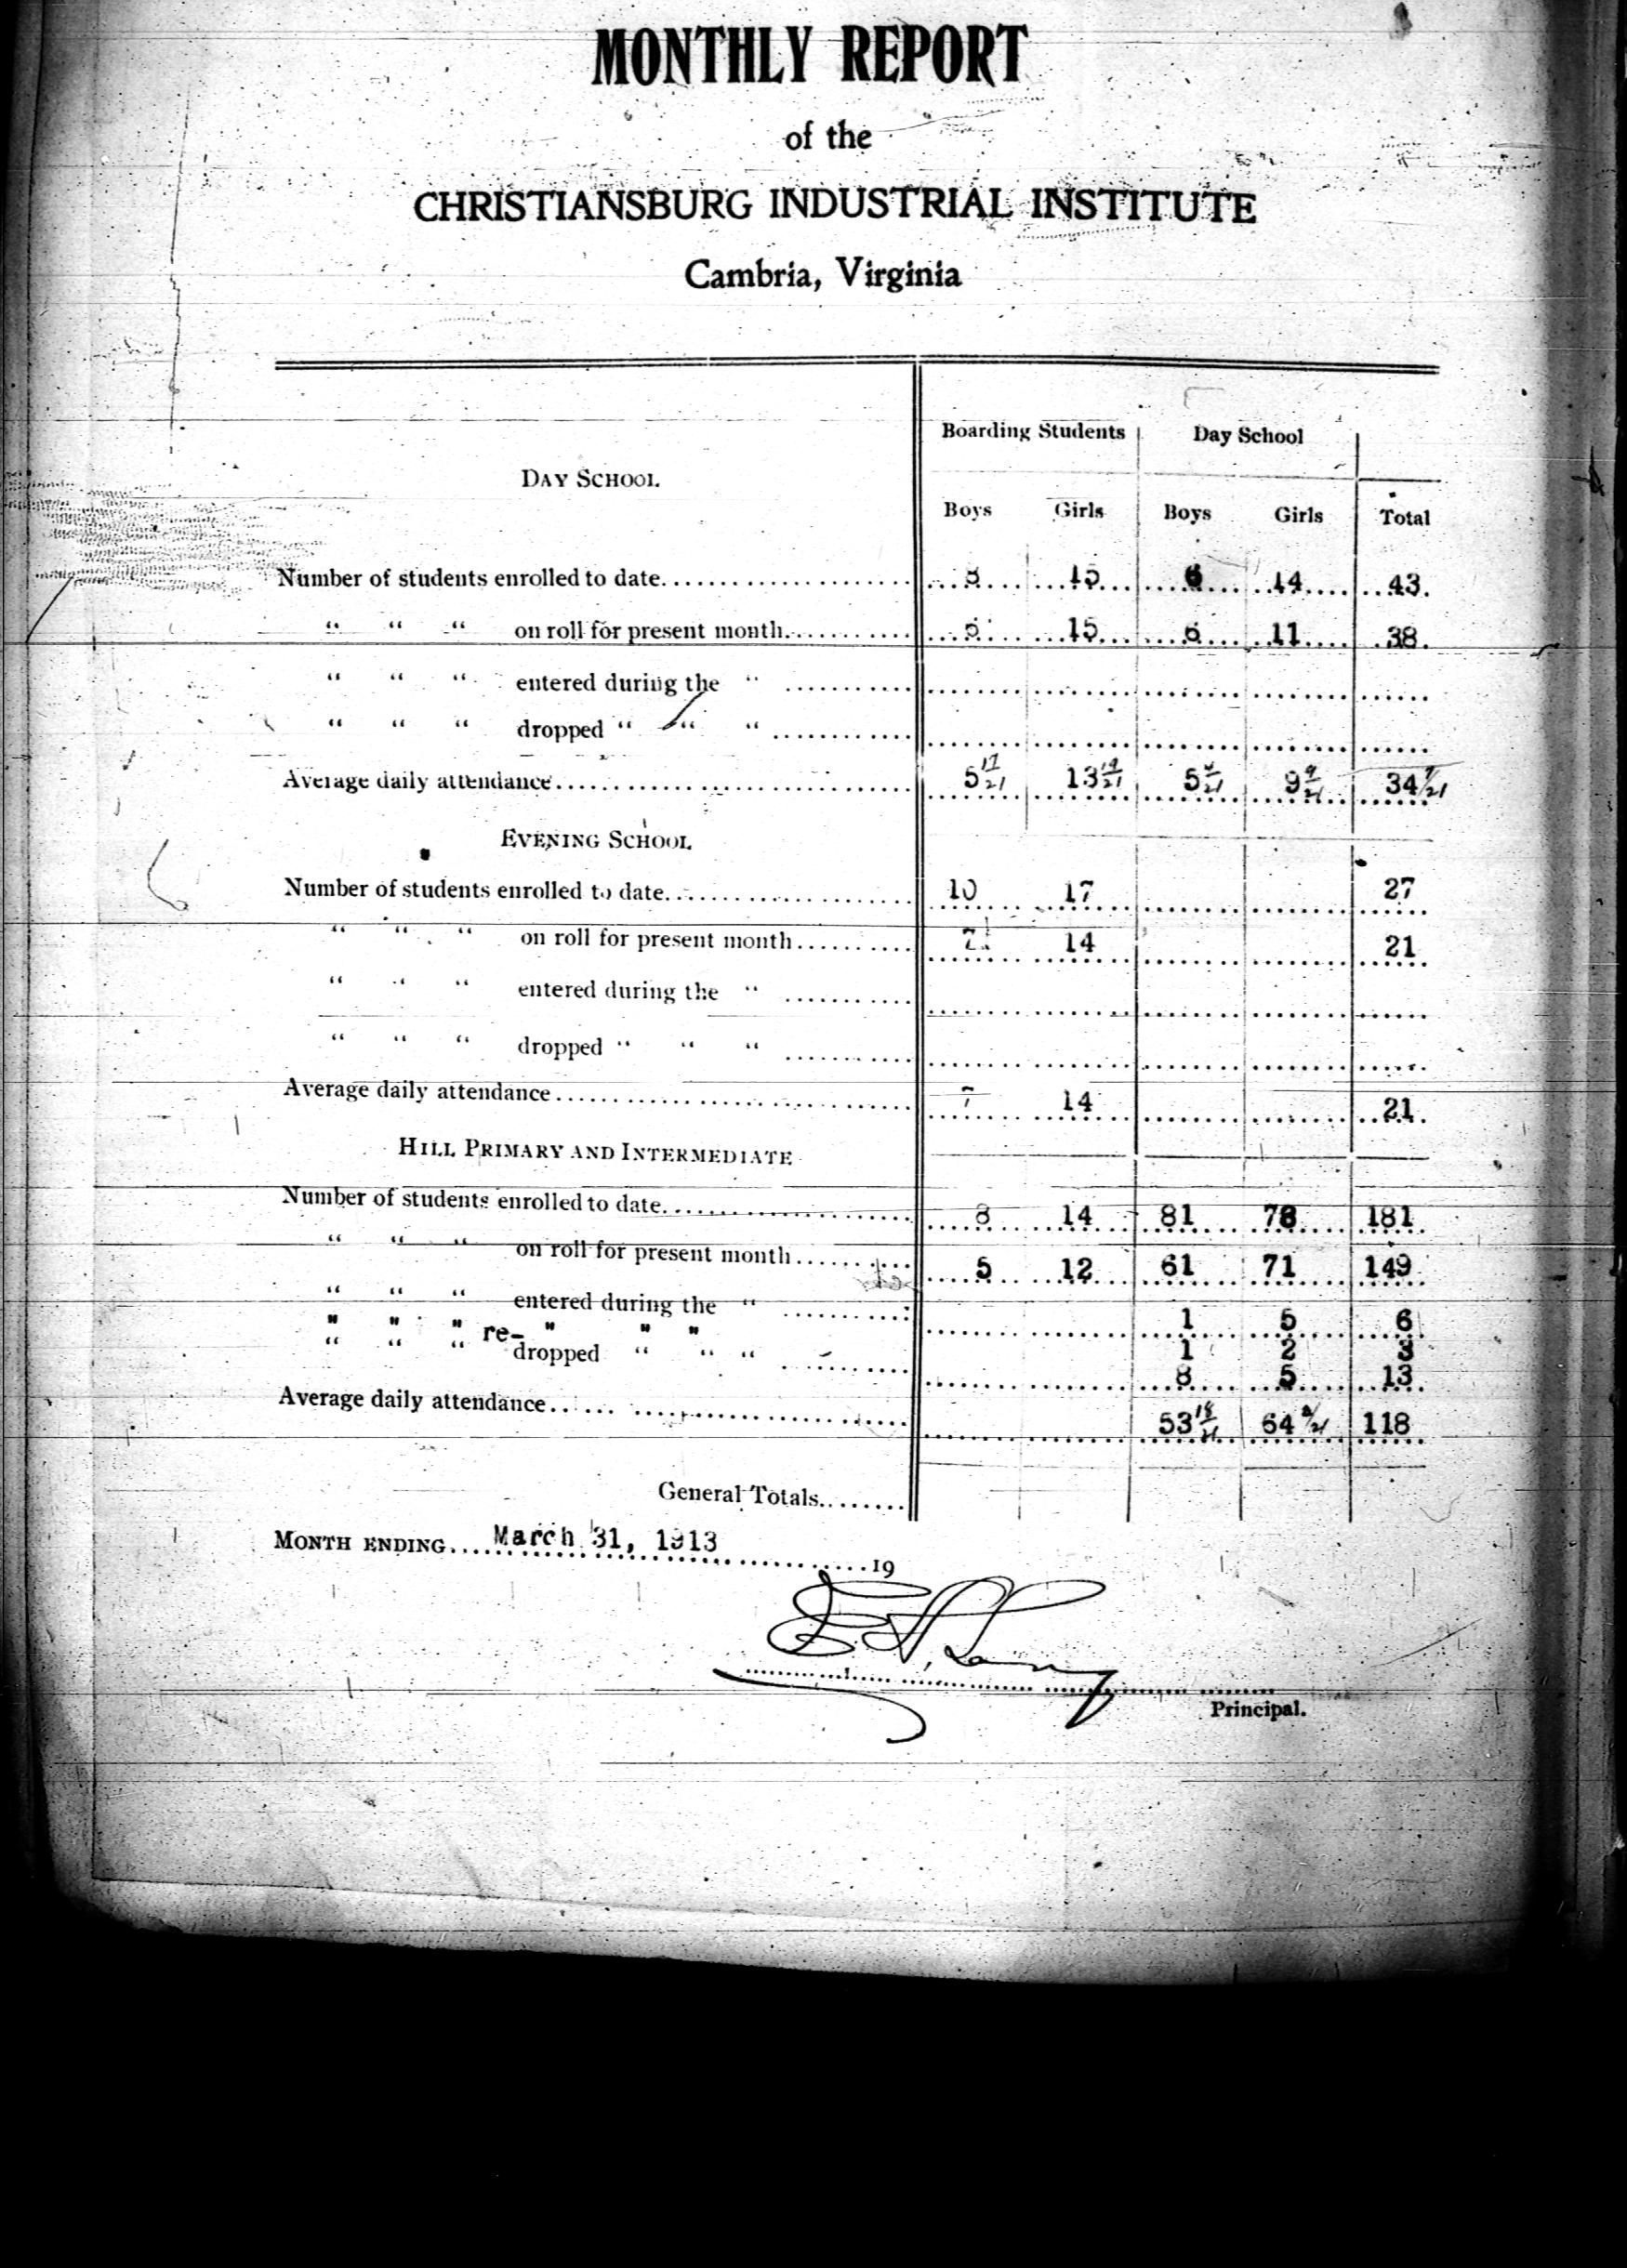 MONTHLY REPORT
of the
CHRISTIANSBURG INDUSTRIAL INSTITUTE
Cambria, Virginia
Boarding Students Day School
DAY SCHOOL
Boys Girls Boys Girls Total
Number of students enrolled to date 8 15 6 14 43
" " " on roll for present month 15 6 11 38
" " " entered during the "
" " " dropped " " "
Average daily attendance 5 17/21 13 19/21 5 9 9/21 34
EVENING SCHOOL
Number of students enrolled to date 10 17 27
" " " on roll for present month 7 14 21
" " " entered during the "
" " " dropped " " "
Average daily attendance 7 14 21
HILL PRIMARY AND INTERMEDIATE
Number of students enrolled to date 8 14 81 78 181
" " " on roll for present month 5 12 61 71 149
" " " entered during the " 1 5 6
" " " re- " " " 1 2 3
" " " dropped " " " 8 5 13
Average daily attendance 53 18/21 64 118
General Totals
MONTH ENDING March 31, 1913 19
E. A. Long
Principal.